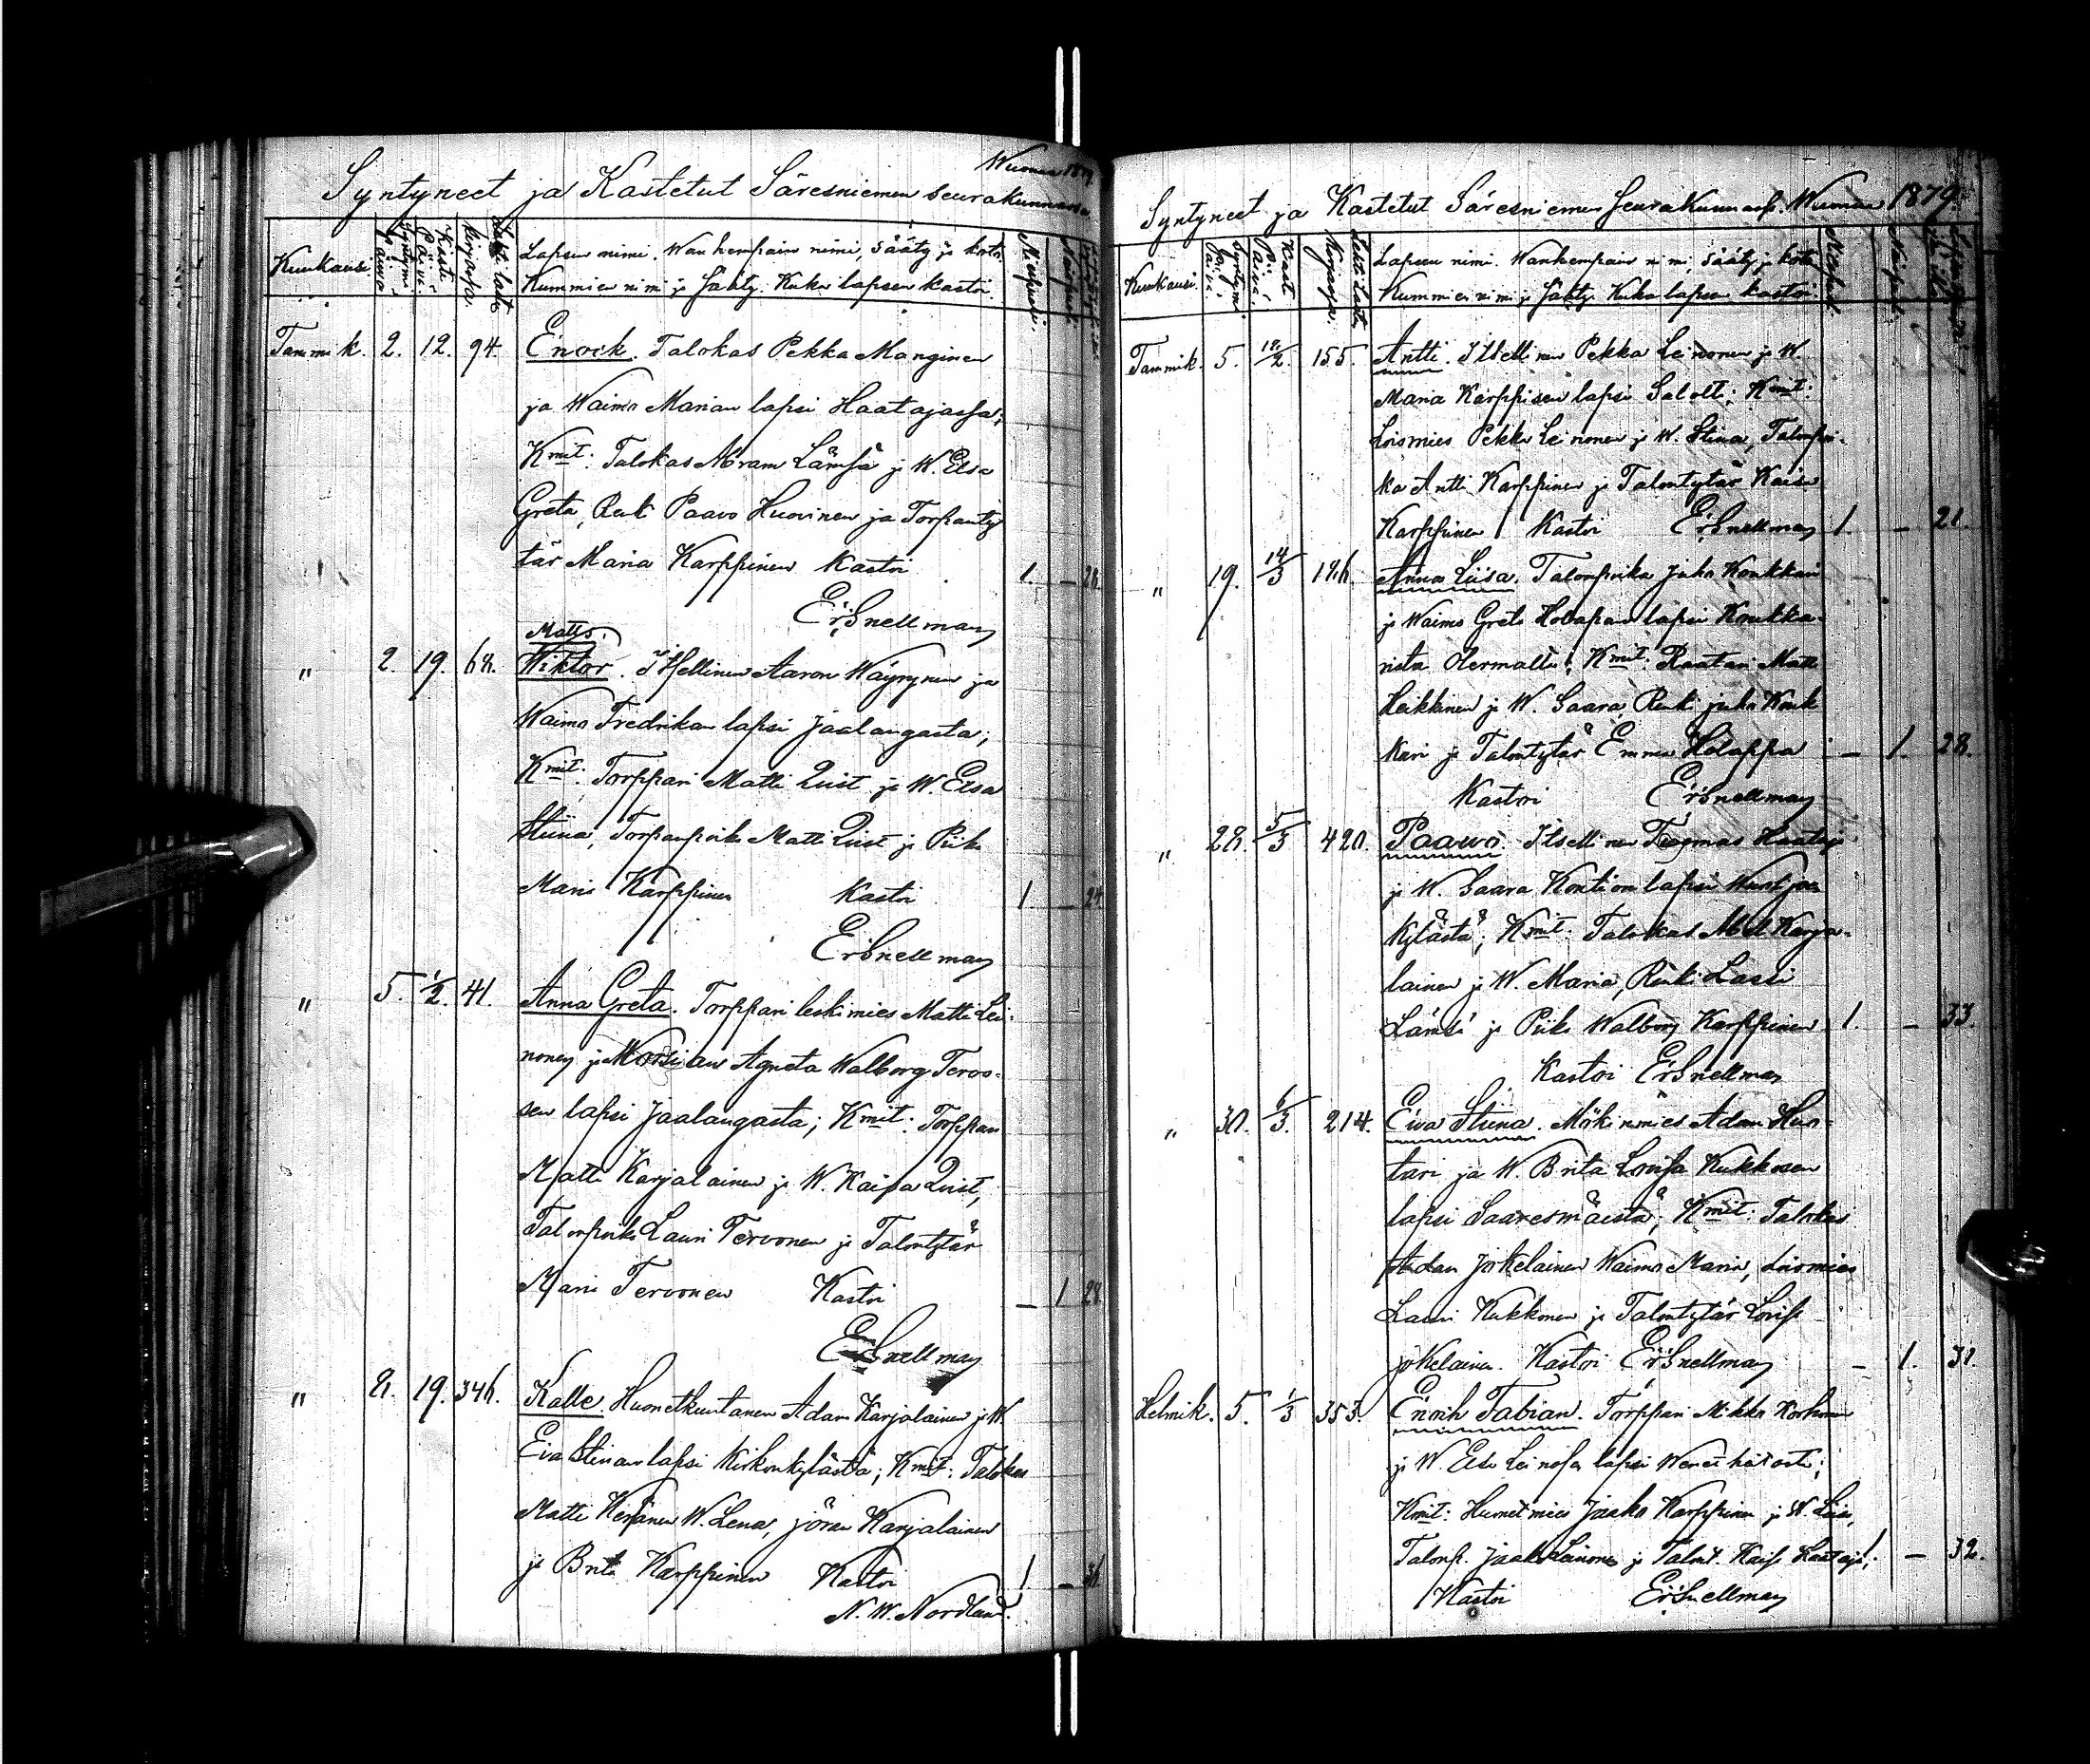 Syntyneet ja Kastetut Säresniemen seurakunnassa
Kuukausi.
Lapsen nimi. Wanhempain nimi, sääty ja koto.
Kummien nimi ja Sääty. Kuka lapsen kastoi.
Tammik. 2. 12. 94. Enock. Talokas Pekka Manginen
ja Waimo Marian lapsi Haatajassa;
Kmit: Talokas Abram Lämsä ja W. Elsa
Greta, Renk. Paavo Huovinen ja Torpanty
tär Maria Karppinen Kastoi 1. — 28.
ErSnellman
Matts.
" 2. 19. 68. Wiktor. Itsellinen Aaron Wäyrynen ja
Waimo Fredrikan lapsi Jaalangasta;
Kmit: Torppari Matti Quist ja W. Elsa
Stiina, Torpanpoika Matti Quist ja Piika
Maria Karppinen Kastoi 1. — 24.
ErSnellman
" 5. 1/2. 41. Anna Greta. Torppari leskimies Matti Lei-
nonen ja Agneta Walborg Tervo-
sen lapsi Jaalangasta; Kmit: Torppari
Matti Karjalainen ja W. Kaisa Quist,
Talonpoika Lauri Tervonen ja Talontytär
Maria Tervonen Kastoi — 1 28.
ErSnellman
" 8. 19. 346. Kalle. Huonetkuntanen Adam Karjalainen ja W.
Eva Stinan lapsi Kirkonkylästä; Kmit: Talokas
Matti Keränen W. Lena, Jöran Karjalainen
ja Brita Karppinen Kastoi 1. — 36.
N. W. Nordlund.
Syntyneet ja Kastetut Säresniemen Seurakunnassa Wuonna 1879.
Kuukausi.
Lapsen nimi. Wanhempain nimi, sääty ja koto
Kummien nimi ja Sääty. Kuka lapsen kastoi.
Tammik. 5. 155. Antti. Itsellinen Pekka Leinonen ja W.
Maria Karppisen lapsi Kmit:
Loismies Pekka Leinonen ja W. Stina, Talonpoi-
ka Antti Karppinen ja Talontytär Kaisa
Karppinen Kastoi ErSnellman 1. — 21.
" 19. 14/3 186. Anna Liisa. Talonpoika Juho Konkkari
ja Waimo Greta Holapan lapsi Konkka-
rista Kmit: Raatari Matti
Heikkinen ja W. Saara, Renk. Juho Konk
kari ja Talontytär Emma Holappa — 1. 28.
Kastoi ErSnellman
" 28. 5/3 420. Paawo. Itsellinen Tuomas Haataja
ja W. Saara Kontion lapsi
kylästä; Kmit: Talokas Abel Karja-
lainen ja W. Maria, Renki Lassi
Lämsä ja Piika Walborg Karppinen 1. — 33.
Kastoi ErSnellman
" 30. 6/3. 214. Eiva Stiina. Mökinmies Adam Huo-
tari ja W. Brita Lovisa Kukkosen
lapsi Saaresmäestä; Kmit: Talokas
Adam Jokelainen Waimo Maria, Loismies
Lauri Kukkonen ja Talontytär Lovisa
Jokelainen. Kastoi ErSnellman — 1. 31.
Helmik. 5. 1/3 353. Enoch Fabian. Torppari Mikko Korhonen
ja W. Elsa Leinosen lapsi
Kmit: Huonetmies Jaako Karppinen ja W. Liisa,
Talonp. Jaako Leinonen ja Talont. Kaisa Haataja; 1. — 32.
Kastoi ErSnellman